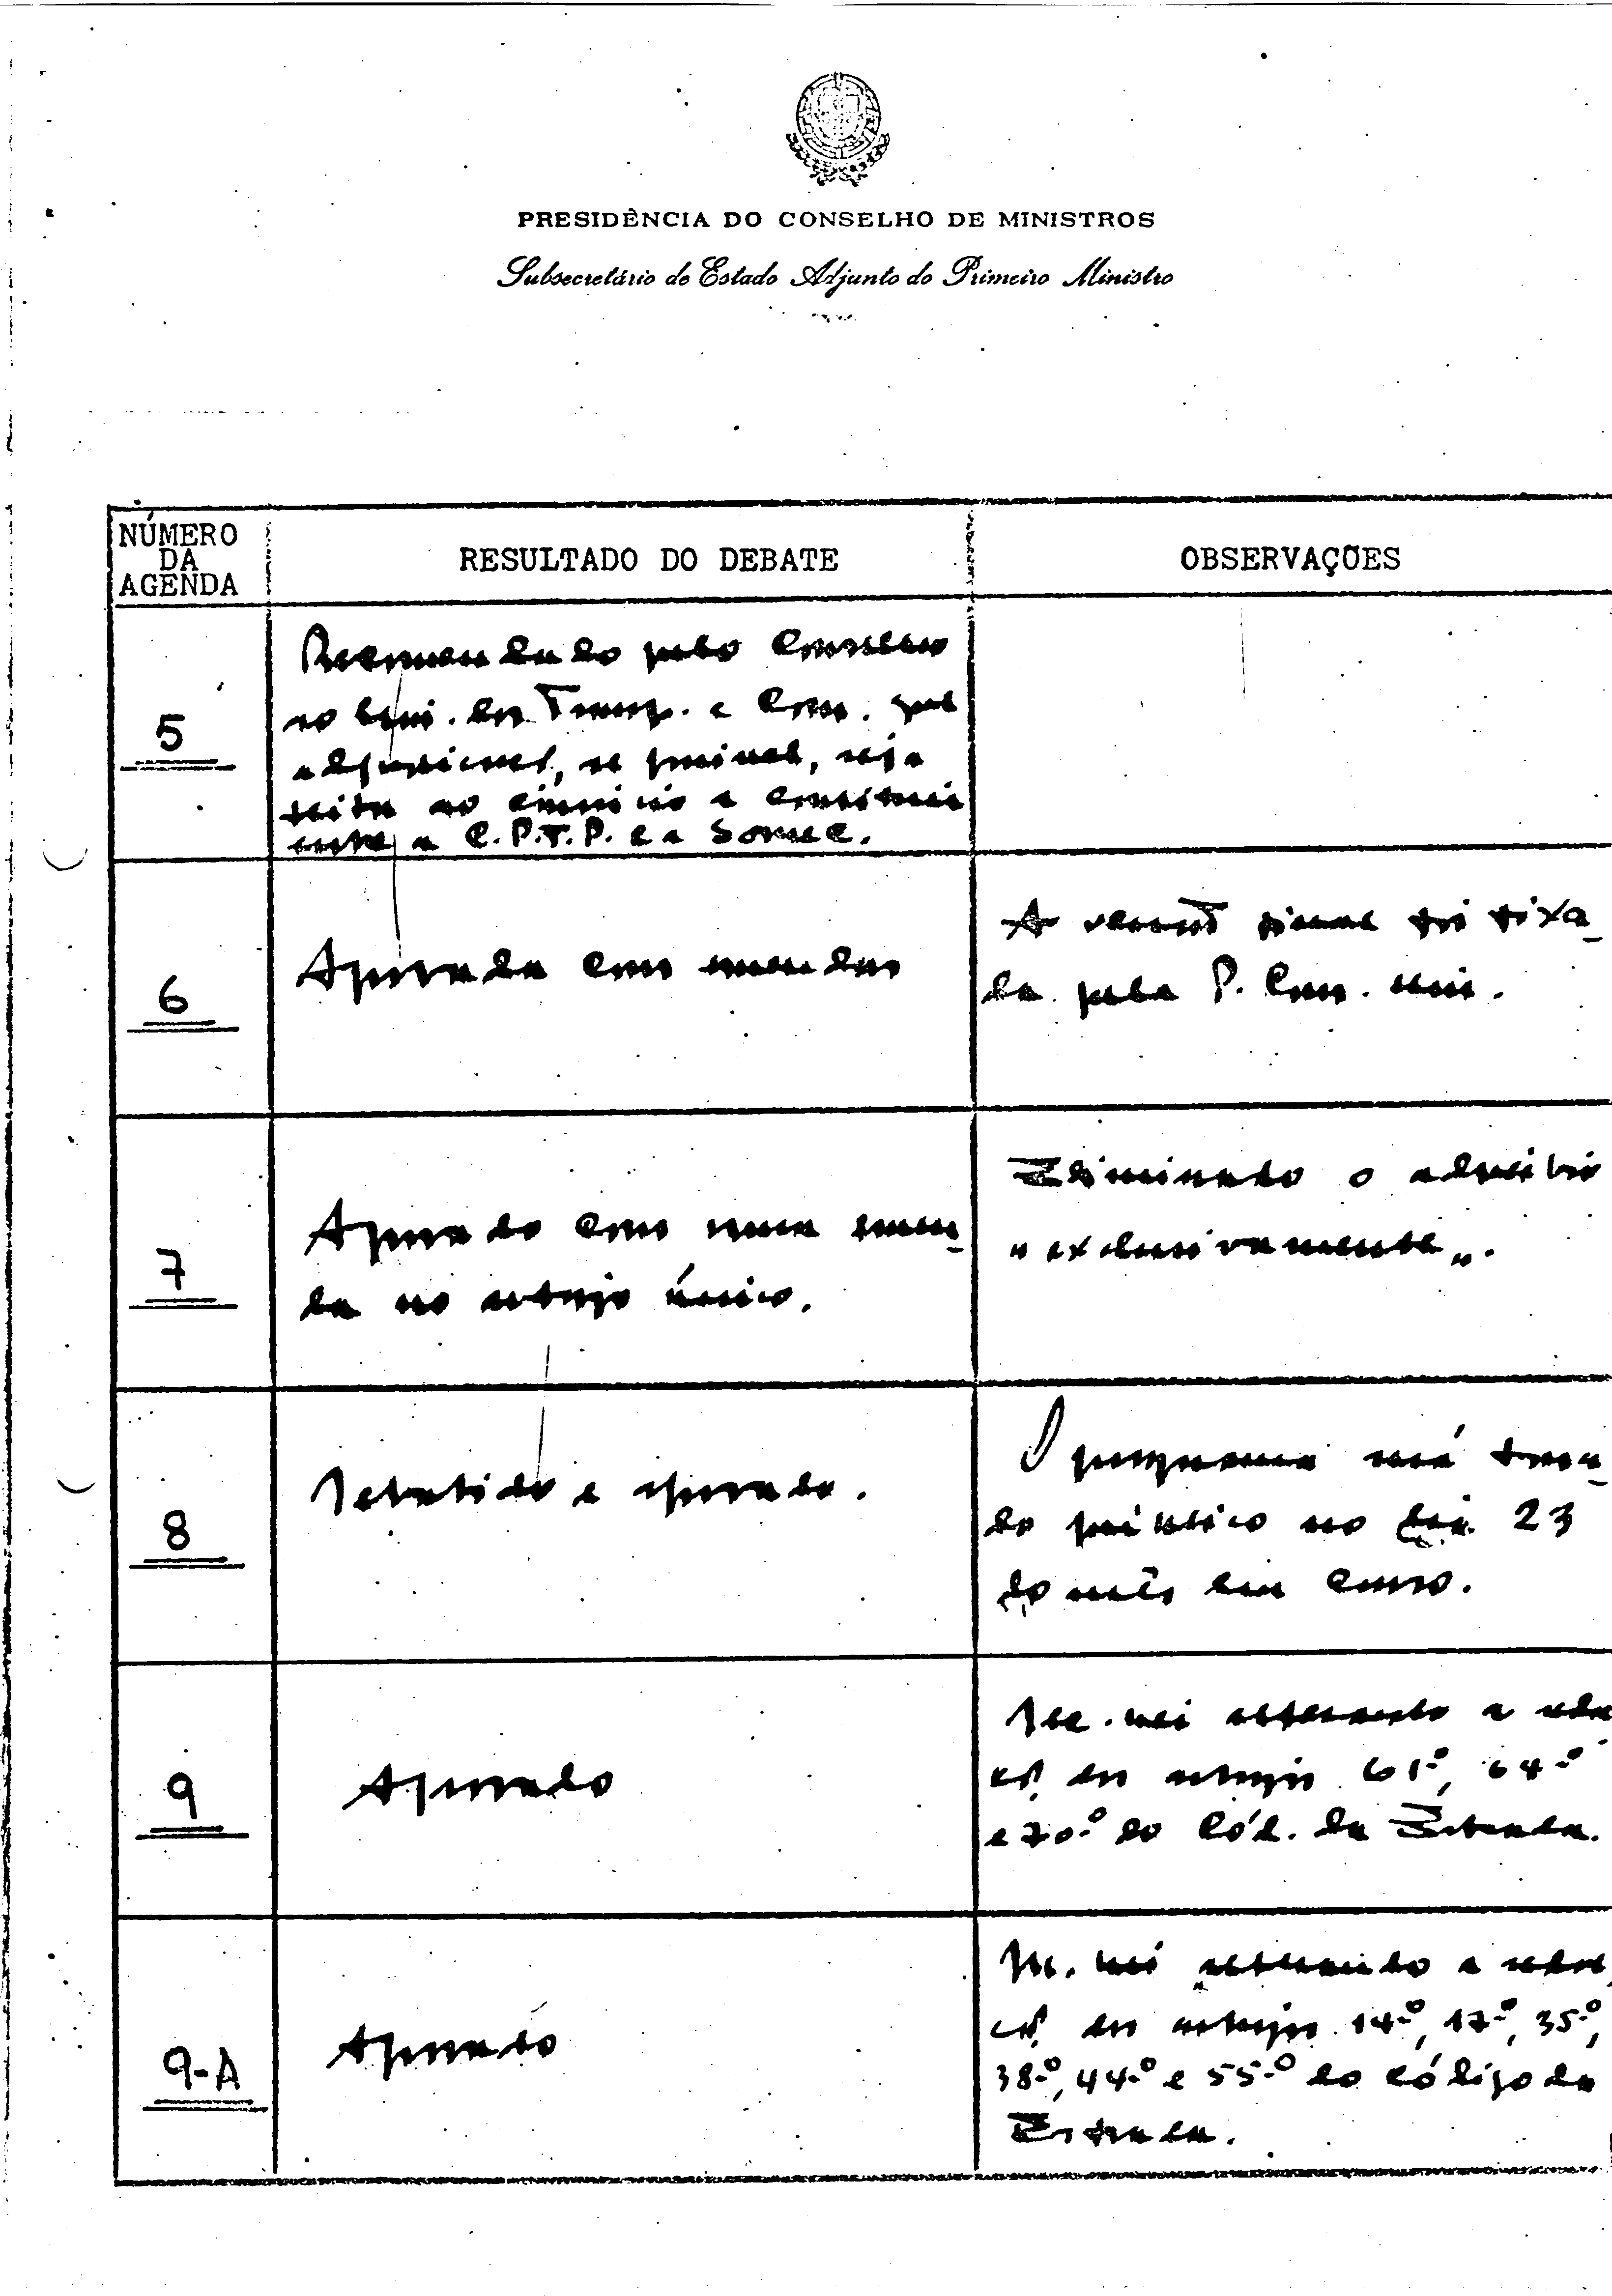 PRESIDÊNCIA DO CONSELHO DE MINISTROS
Subsecretário de Estado Adjunto do Primeiro Ministro
NÚMERO
DA
AGENDA
RESULTADO DO DEBATE
OBSERVAÇÕES
5
Recomendado pelo Conselho
ao Min. dos Transp. e Com. que
a adjudicação, se possível, seja
feita ao consórcio a constituir
entre a C.P.T.P. e a Somec.
6
Aprovada com emendas
A versão final foi fixa-
da pela P. Con. Min.
7
Aprovado com uma emen-
da no artigo único.
Eliminado o advérbio
"exclusivamente".
8
Debatido e aprovado.
O programa será torna-
do público no dia 23
do mês em curso.
9
Aprovado
Dec. Lei alterando a
dos artigos 61.º, 64.º
e 70.º do Cód. da Estrada.
9-A
Aprovado
alterando a
dos artigos 14.º, 17.º, 35.º,
38.º, 44.º e 55.º do Código da
Estrada.